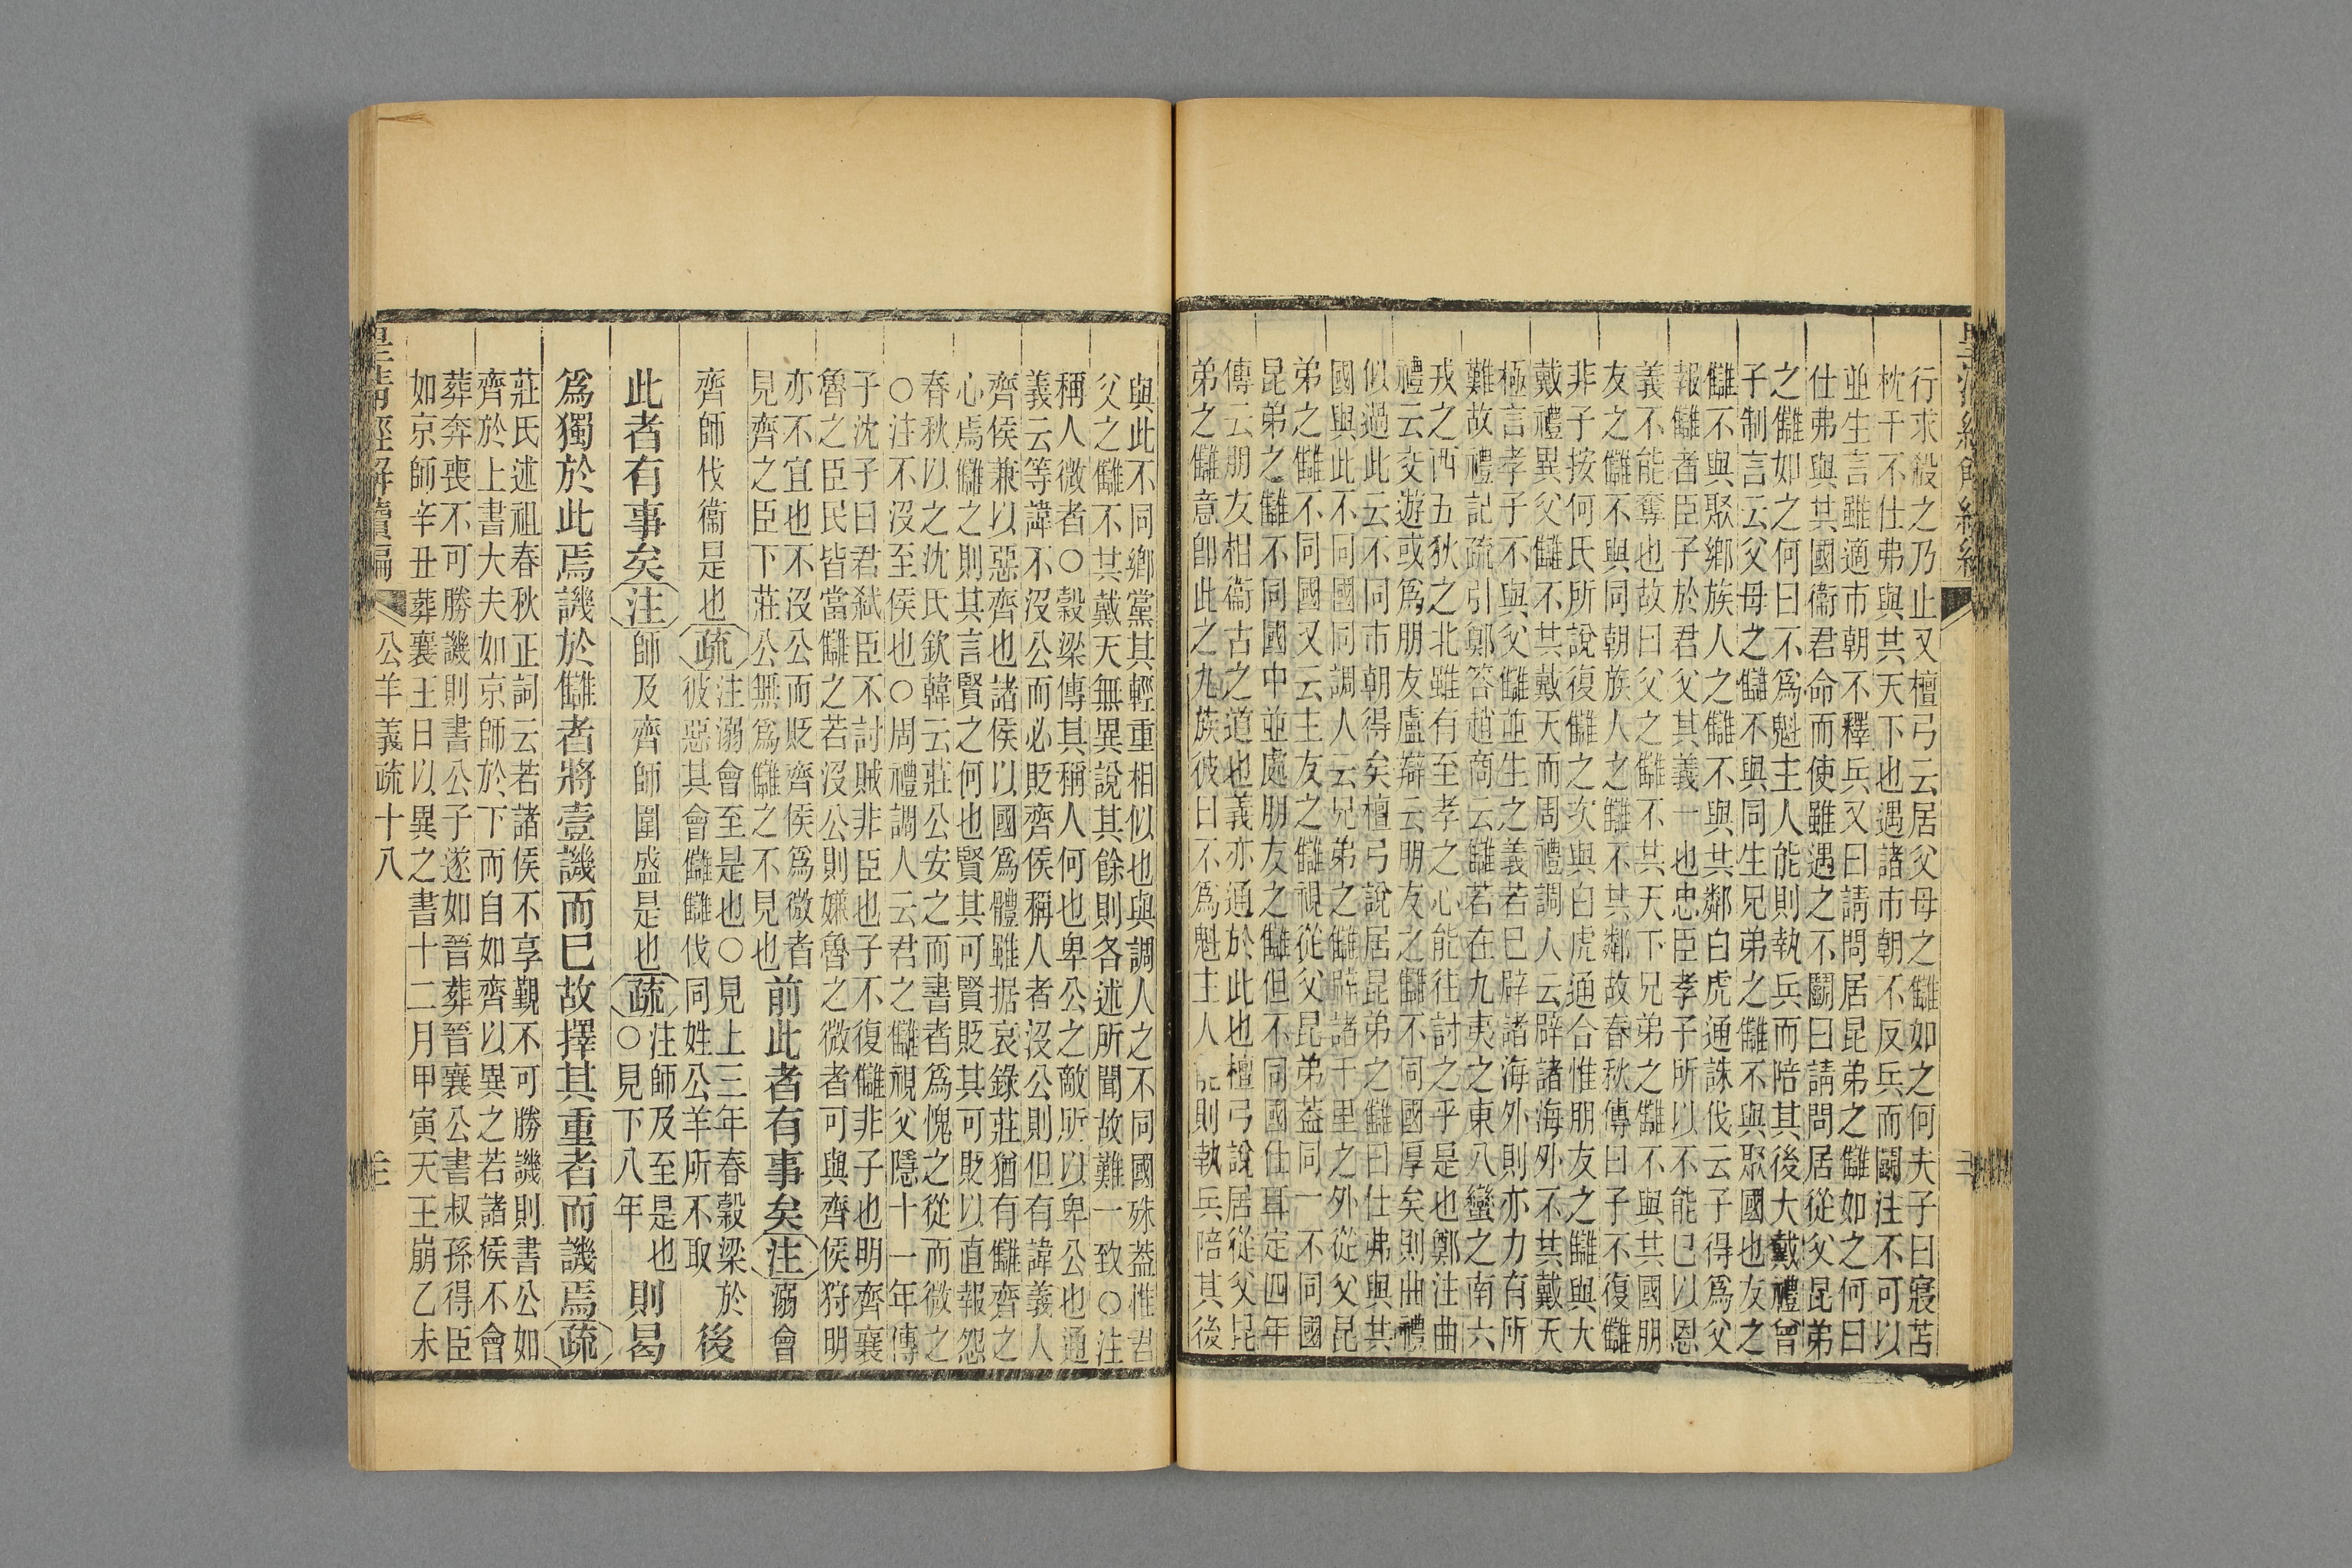 行求殺之乃止又檀弓云居父母之讎如之何夫子曰寢苫
枕干不仕弗與其天下也遇諸市朝不反兵而鬬注不可以
並生言雖適市朝不釋兵又曰請問居昆弟之讎如之何曰
仕弗與其國銜君命而使雖遇之不鬬曰請問居從父昆弟
之讎如之何曰不爲魁主人能則執兵而陪其後大戴禮曾
子制言云父母之讎不與同生兄弟之讎不與聚國也友之
讎不與聚鄉族人之讎不與其鄰白虎通誅伐云子得爲父
報讎者臣子於君父其義一也忠臣孝子所以不能已以恩
義不能奪也故曰父之讎不共天下兄弟之讎不與其國朋
友之讎不與同朝族人之讎不共鄰故春秋傳曰子不復讎
非子按何氏所說復讎之次與白虎通合惟朋友之讎與大
戴禮異父讎不共戴天而周禮調人云辟諸海外不共戴天
極言孝子不與父讎並生之義若已辟諸海外則亦力有所
難故禮記疏引鄭答趙商云讎若在九夷之東八蠻之南六
戎之西五狄之北雖有至孝之心能往討之乎是也鄭注曲
禮云交遊或爲朋友盧辯云朋友之讎不同國厚矣則曲禮
似過此云不同市朝得矣檀弓說居昆弟之讎曰仕弗與其
國與此不同國同調人云兄弟之讎辟諸千里之外從父昆
弟之讎不同國又云主友之讎視從父昆弟葢同一不同國
昆弟之讎不同國中並處朋友之讎但不同國仕耳定四年
傳云朋友相衞古之道也義亦通於此也檀弓說居從父昆
弟之讎意卽此之九族彼曰不爲魁主人能則執兵陪其後
與此不同鄉黨其輕重相似也與調人之不同國殊葢惟君
父之讎不共戴天無異說其餘則各述所聞故難一致○注
稱人微者○穀梁傳其稱人何也卑公之敵所以卑公也通
義云等諱不沒公而必貶齊侯稱人者沒公則但有諱義人
齊侯兼以惡齊也諸侯以國爲體雖据哀錄莊猶有讎齊之
心焉讎之則其言賢之何也賢其可賢貶其可貶以直報怨
春秋以之沈氏欽韓云莊公安之而書者爲愧之從而微之
○注不沒至侯也○周禮調人云君之讎視父隱十一年傳
子沈子曰君弑臣不討賊非臣也子不復讎非子也明齊襄
魯之臣民皆當讎之若沒公則嫌魯之微者可與齊侯狩明
亦不宜也不沒公而貶齊侯爲微者
見齊之臣下莊公無爲讎之不見也
前此者有事矣
注
溺會
齊師伐衞是也
疏
注溺會至是也○見上三年春穀梁於
彼惡其會讎讎伐同姓公羊所不取
後
此者有事矣
注
師及齊師圍盛是也
疏
注師及至是也
○見下八年
則曷
爲獨於此焉譏於讎者將壹譏而已故擇其重者而譏焉
疏
莊氏述祖春秋正詞云若諸侯不享覲不可勝譏則書公如
齊於上書大夫如京師於下而自如齊以異之若諸侯不會
葬奔喪不可勝譏則書公子遂如晉葬晉襄公書叔孫得臣
如京師辛丑葬襄王日以異之書十二月甲寅天王崩乙未
皇淸經解續編
公羊義疏十八